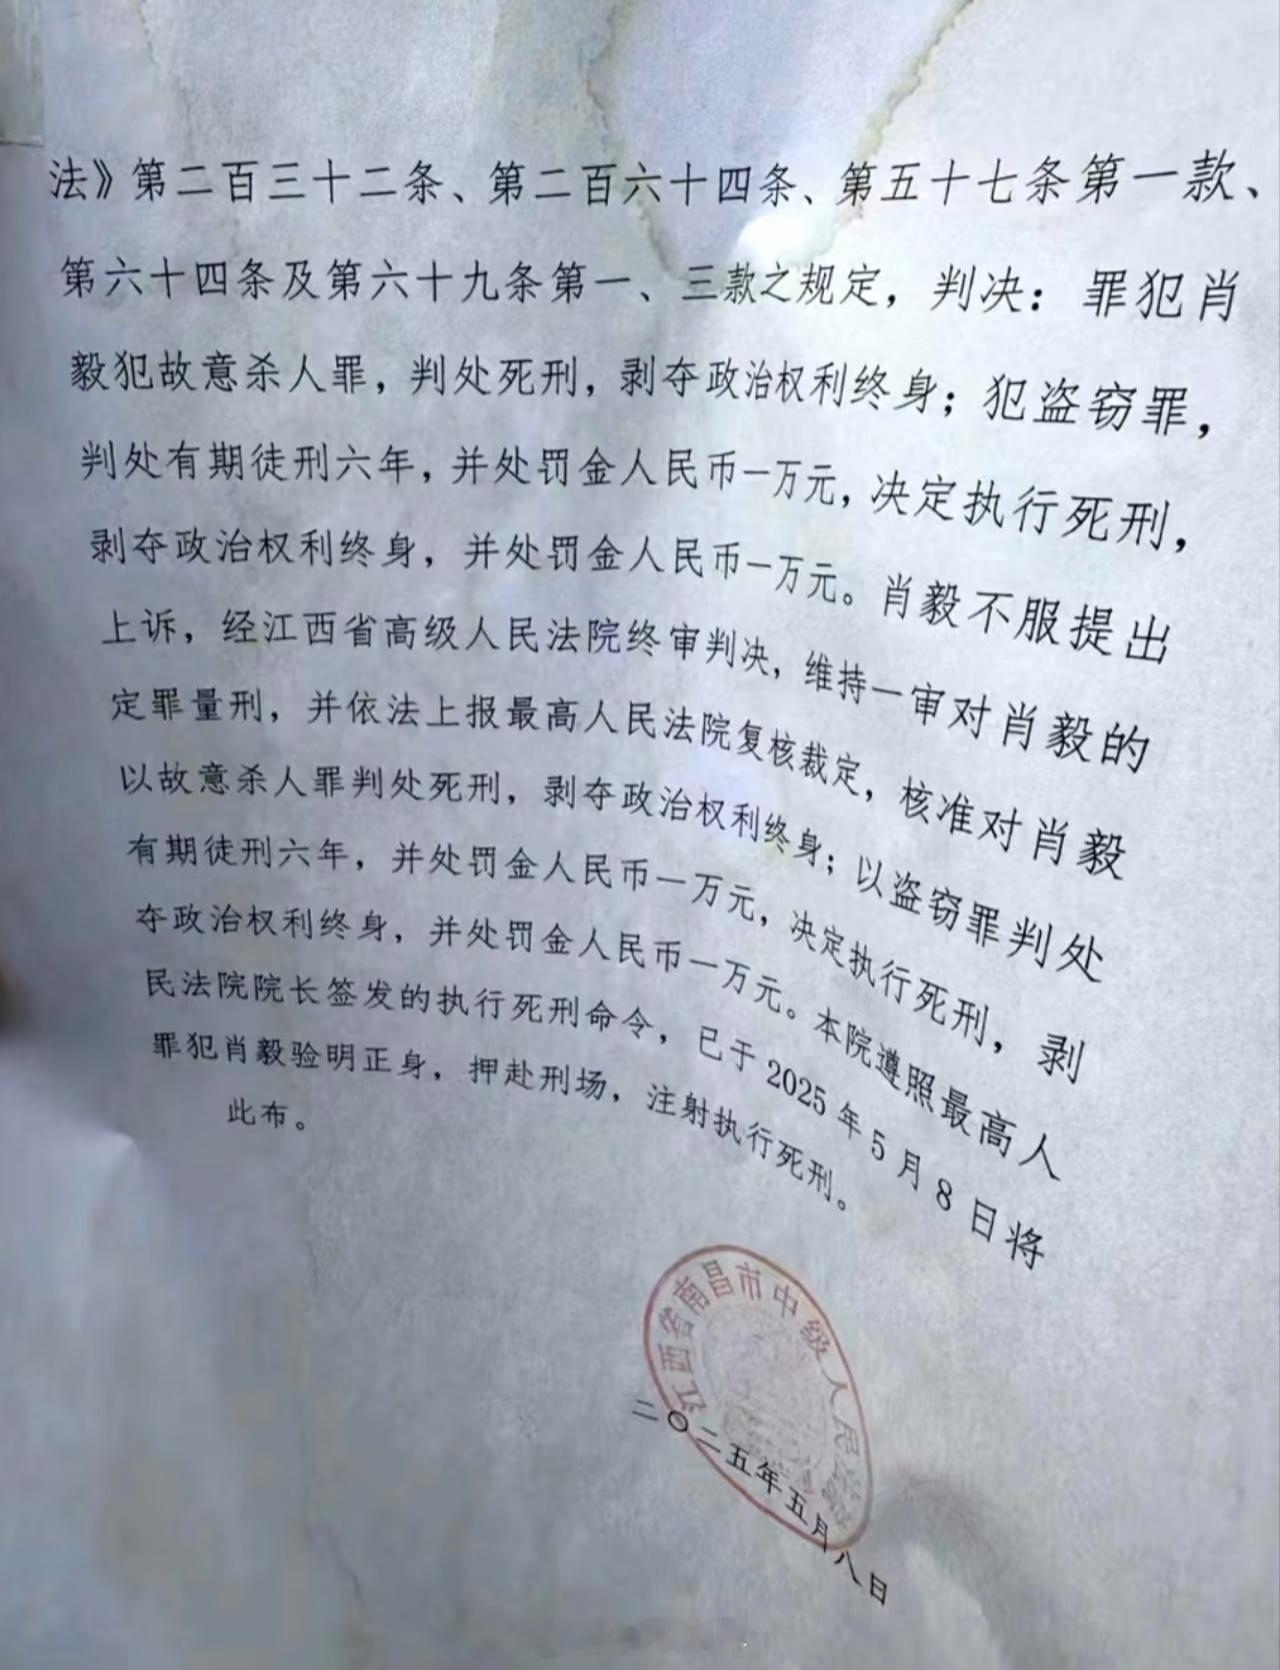 法》第二百三十二条、第二百六十四条、第五十七条第一款、
第六十四条及第六十九条第一、三款之规定，判决：罪犯肖
毅犯故意杀人罪，判处死刑，剥夺政治权利终身；犯盗窃罪，
判处有期徒刑六年，并处罚金人民币一万元，决定执行死刑，
剥夺政治权利终身，并处罚金人民币一万元。肖毅不服提出
上诉，经江西省高级人民法院终审判决，维持一审对肖毅的
定罪量刑，并依法上报最高人民法院复核裁定，核准对肖毅
以故意杀人罪判处死刑，剥夺政治权利终身；以盗窃罪判处
有期徒刑六年，并处罚金人民币一万元，决定执行死刑，剥
夺政治权利终身，并处罚金人民币一万元。本院遵照最高人
民法院院长签发的执行死刑命令，已于2025年5月8日将
罪犯肖毅验明正身，押赴刑场，注射执行死刑。
此布。
江西省南昌市中级人民法院
二〇二五年五月八日